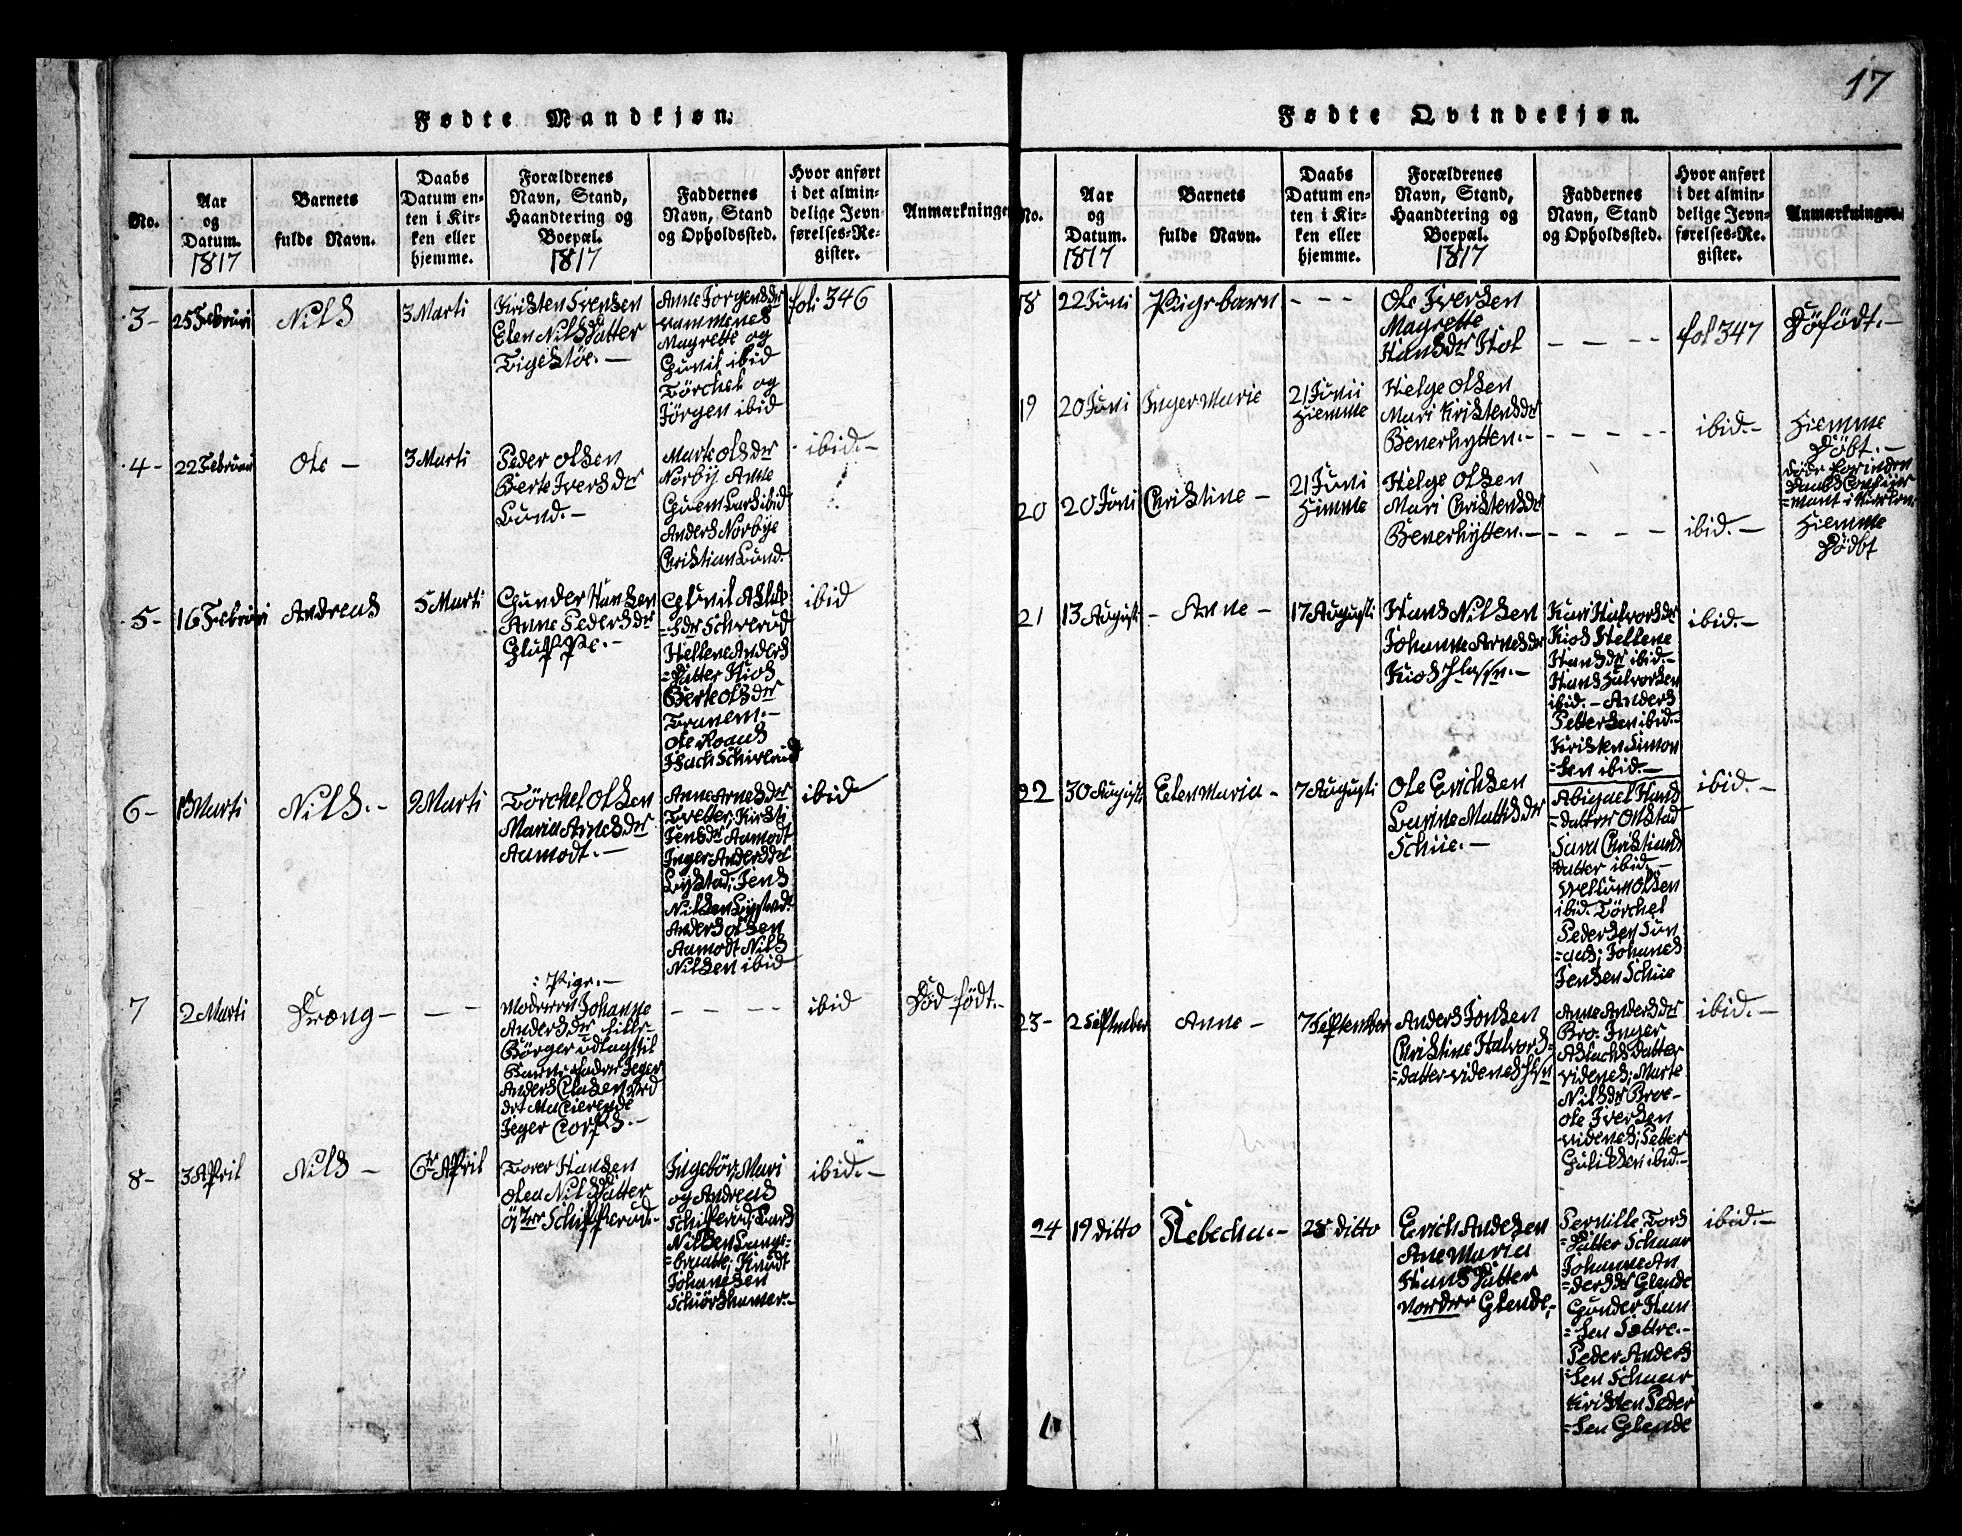 17
Fødte Mandkjøn.
No.
Aar
og
Datum.
1817
Barnets
fulde Navn.
Daabs
Datum en-
ten i Kir-
ken eller
hjemme.
Forældrenes
Navn, Stand,
Haandtering og
Boepæl.
1817
Faddernes
Navn, Stand
og Opholdssted.
Hvor anført
i det almin-
delige Jevn-
førelses-Re-
gister.
Anmærkninger
3-
25 Februari
Nils
3 Marti
Kirsten Ivensen
Elen Nils Datter
Tigestøe.-
Anne Jørgensdr
Magrette og
Gunil ibid
Törchel og
Jörgen ibid
fol: 346
4-
22 Februari
Ole -
3 Marti
Peder Olsen
Berte Iversdr
Lund.-
Marte Olsdr
Norbÿ Anne
Guem Lars ibid
Anders Norbÿe
Christian Lund.
ibid.-
5-
16 Februari
Andreas
5 Marti
Gunder Hansen
Anne Pedersdr
Gluppe.-
Gunil Aslas
=dr Schierud
Hellene Anders
=Datter Kios
Berte Olsdr
Tranem.-
Ole Roads
Isach Schirerud
ibid
6-
1 Marti
Nils.-
9 Marti
Törchel Olsen
Maria Arnesdr
Aamodt.-
Anne Arnesdr
Tvetter, Kirsti
Jensdr Aamodt
Inger Andersdr
Lÿstad; Jens
Nilsen Lÿstad
Anders Olsen
Aamodt Nils
Nilsen ibid
ibid
7
2 Marti
Dræng-
- -
: Pige.-
Moderen Johanne
Andersdr
Börger udlagt til
Barne-fader Jeger
Anders Clasen ved
det
Jeger Corps.-
- - - -
ibid
Død födt.-
8-
3 April
Nils -
6te April
Torer Hansen
Olea Nils Datter
Schipperud.-
Ingebör, Mari
og Andreas
Schipperud; Lars
Nilsen Lange=
=braatte; Knudt
Johanesen
Schiörshamer.-
ibid.-
Fødte Qvindekjøn.
No.
Aar
og
Datum.
1817
Barnets
fulde Navn.
Daabs
Datum en-
ten i Kir-
ken eller
hjemme.
Forældrenes
Navn, Stand,
Haandtering og
Boepæl.
1817
Faddernes
Navn, Stand
og Opholdssted.
Hvor anført
i det almin-
delige Jevn-
førelses-Re-
gister.
Anmærkninger.
18
22 Juni
Pigebarn
- - -
Ole Iversen
Magrette
Hansdr Hol
- - - -
fol 347
Döfödt.-
19
20 Juni
Inger Marie
21 Junii
Hiemme
Helge Olsen
Mari Kirstensdr
Beverhytten.-
- - - -
ibid.-
Hiemme
Döbt.-
20
20 Juni
Christine -
21 Juni
Himme
Helge Olsen
Mari Christensdr
Beverhytten.-
- - - -
ibid.-
Döde forinden
Daabs Confier=
=mant i Kierken
Hiemme
Dödbt
21
13 Augusti
- Anne -
17 Augusti
Hans Nilsen
Johanne Arnesdr
Kios
Kari Halvorsdr
Kios Hellene
Hansdr ibid.-
Hans Halvorsen
ibid.- Anders
Pettersen ibid.-
Kirsten Simon
=sen ibid.-
ibid.-
22
30 Augusti
Elen Maria -
7 Augusti
Ole Erichsen
Laurine Mathisdr
Schiie.-
Abigael Hans
=datter Olstad
Sara Christians
Datter ibid.-
ibid. Törchel
Pedersen
Johanes
Jensen Schiie
ibid.-
23-
2 September
Anne -
7 September
Anders Jonsen
Christine Halvors=
=datter Videnes
Anne Andersdr
Bro. Inger
Aslachs Datter
Videnes; Marte
Nilsdr Broe-
Ole Iversen
Videnes; Petter
Gulissen ibid.-
ibid.-
24
19 ditto
Rebecha.-
28 ditto
Erich Andesen
Ane Maria
Hans Datter
Nordrer Glende.
Pernille Tors
=Datter Schaar
Johanne An
=dersdr Glende
Gunder Han
=sen Sattre.-
Peder Anders
=sen Schaar
Kirsten Peder
=sen Glende
ibid.-